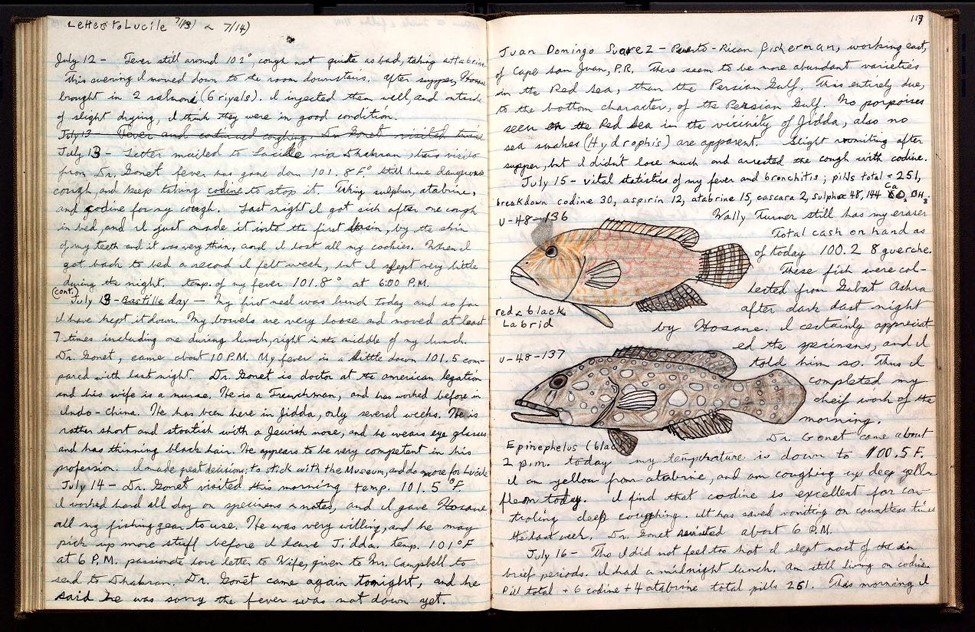 Letter to Lucile 7/13) a 7/14)
July 12 - Fever still around 102°, cough not quite as bad, taking atabrine.
This evening I moved down to the room downstairs. After supper, Hosane
brought in 2 salmond (6 riyals). I injected them well, and
of slight drying, I think they were in good condition.
July 13 - Fever and continued coughing. Dr. Gonet visited
July 13 - Letter mailed to Lucile via Dhahran, then visited
from Dr. Gonet fever has gone down 101.8 F° still have dangerous
cough and keep taking codine to stop it. Taking sulphur, atabrine,
and codine for my cough. Last night I got sick after one cough
in bed, and I just made it into the first basin, by the skin
of my teeth and it was very thin, and I lost all my cookies. When I
got back to bed a record I felt weak, but I slept very little
during the night. temp. of my fever 101.8° at 6:00 P.M.
(cont.) July 13 - Bastille day - My first meal was lunch today and so far
I have kept it down. My bowels are very loose and moved at least
7 times including one during lunch, right in the middle of my lunch.
Dr. Gonet, came about 10 P.M. My fever is a little down 101.5 com-
pared with last night. Dr. Gonet is doctor at the american legation
and his wife is a nurse. He is a Frenchman, and has worked before in
Indo-china. He has been here in Jidda, only several weeks. He is
rather short and stoutish with a Jewish nose, and he wears eye glasses
and has thinning black hair. He appears to be very competent in his
profession I made great decision; to stick with the Museum, and do more for Lucile
July 14 - Dr. Gonet visited this morning temp. 101.5 °F
I worked hard all day on specimens & notes, and I gave Hosane
all my fishing gear to use. He was very willing, and he may
pick up more stuff before I leave Jidda. temp. 101°F
at 6 P.M. passionate love letter to Wife, given to Mr. Campbell to
send to Dhahran. Dr. Gonet came again tonight, and he
said he was sorry the fever was not down yet.
113
Juan Domingo Suarez - Puerto-Rican fisherman, working east,
of Cape San Juan, P.R. There seem to be more abundant varieties
in the Red Sea, then the Persian Gulf. This entirely due,
to the bottom character, of the Persian Gulf. No porpoises
seen in the Red Sea in the vicinity of Jidda, also no
sea snakes (Hydrophis) are apparent. Slight vomiting after
supper, but I didn't lose much and arrested the cough with codine.
July 15 - vital statistics of my fever and bronchitis; pills total = 251,
breakdown codine 30, aspirin 12, atabrine 15, cascara 2, sulpha 48, 144
U-48-136
Wally Turner still has my eraser
Total cash on hand as
of today 100.28 guerche.
These fish were col-
lected from Gubat Ashra
after dark last night
red & black
Labrid
by Hosane. I certainly appreciat-
ed the specimens, and I
U-48-137
told him so. Thus I
completed my
cheif work of the
morning.
Dr. Gonet came about
Epinephelus (blac
2 p.m. today my temperature is down to 100.5 F.
I am yellow from atabrine, and am coughing up deep yellow
flem today. I find that codine is excellent for con-
troling deep coughing. It has saved vomiting on countless times
the last week. Dr. Gonet revisited about 6 P.M.
July 16 - The I did not feel too hot I slept most of the
brief periods. I had a midnight lunch. Am still living on codine.
Pill total + 6 codine + 4 atabrine total pills 261. This morning I